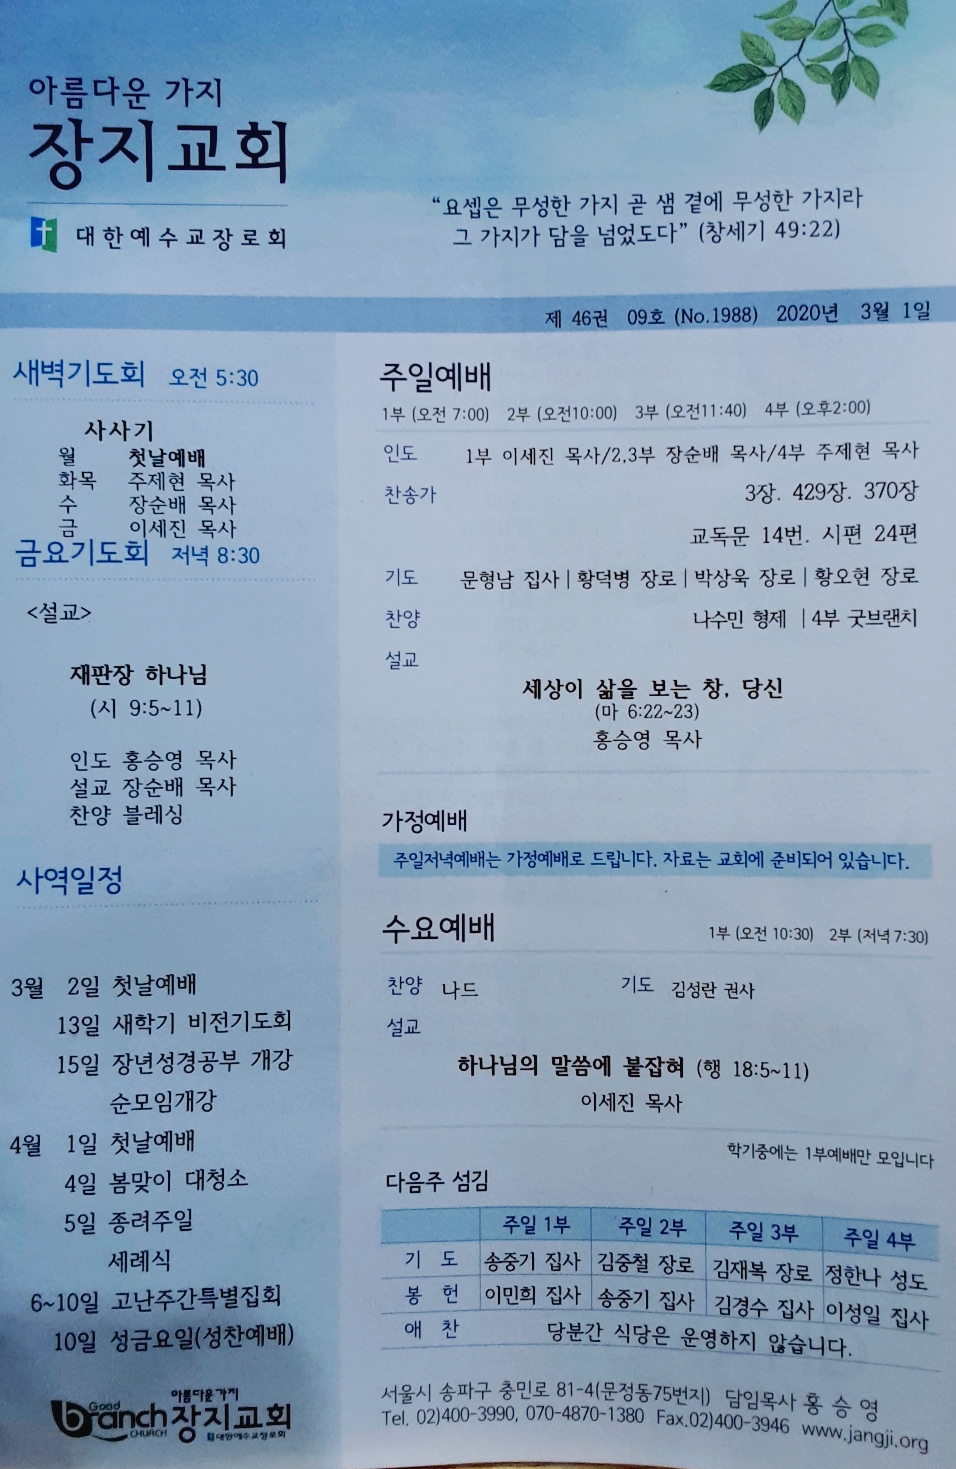 아름다운 가지
장지교회
대한예수교장로회
“요셉은 무성한 가지 곧 샘 곁에 무성한 가지라
그 가지가 담을 넘었도다” (창세기 49:22)
제 46권 09호 (No.1988) 2020년 3월 1일
새벽기도회 오전 5:30
사사기
월 첫날예배
화목 주제현 목사
수 장순배 목사
금 이세진 목사
금요기도회 저녁 8:30
<설교>
재판장 하나님
(시 9:5~11)
인도 홍승영 목사
설교 장순배 목사
찬양 블레싱
사역일정
3월 2일 첫날예배
13일 새학기 비전기도회
15일 장년성경공부 개강
순모임개강
4월 1일 첫날예배
4일 봄맞이 대청소
5일 종려주일
세례식
6~10일 고난주간특별집회
10일 성금요일(성찬예배)
Good
Branch
CHURCH
아름다운 가지
장지교회
대한예수교장로회
주일예배
1부 (오전 7:00) 2부 (오전10:00) 3부 (오전11:40) 4부 (오후2:00)
인도 1부 이세진 목사/2,3부 장순배 목사/4부 주제현 목사
찬송가 3장. 429장. 370장
교독문 14번. 시편 24편
기도 문형남 집사 | 황덕병 장로 | 박상욱 장로 | 황오현 장로
찬양 나수민 형제 | 4부 굿브랜치
설교
세상이 삶을 보는 창, 당신
(마 6:22~23)
홍승영 목사
가정예배
주일저녁예배는 가정예배로 드립니다. 자료는 교회에 준비되어 있습니다.
수요예배 1부 (오전 10:30) 2부 (저녁 7:30)
찬양 나드 기도 김성란 권사
설교
하나님의 말씀에 붙잡혀 (행 18:5~11)
이세진 목사
학기중에는 1부예배만 모입니다
다음주 섬김
주일 1부 주일 2부 주일 3부 주일 4부
기 도 송중기 집사 김중철 장로 김재복 장로 정한나 성도
봉 헌 이민희 집사 송중기 집사 김경수 집사 이성일 집사
애 찬 당분간 식당은 운영하지 않습니다.
서울시 송파구 충민로 81-4(문정동75번지) 담임목사 홍 승 영
Tel. 02)400-3990, 070-4870-1380 Fax.02)400-3946 www.jangji.org